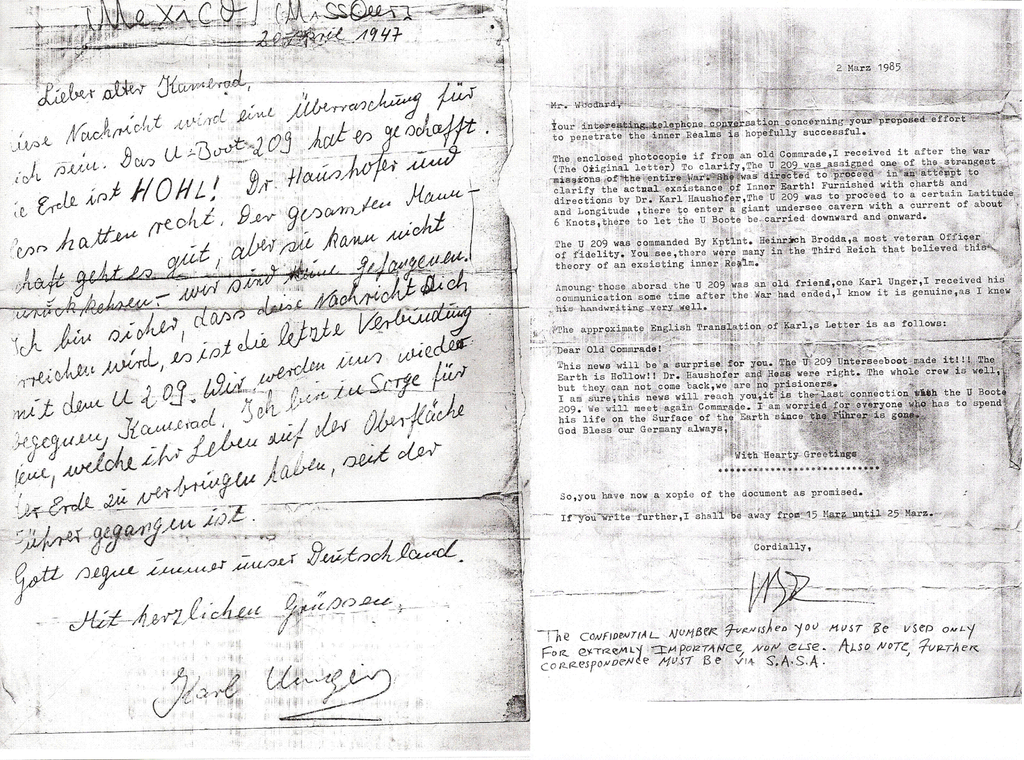 Mexico / (Missouri)
20 April 1947
Lieber alter Kamerad,
iese Nachricht wird eine Überraschung für
ich sein. Das U-Boot 209 hat es geschafft.
ie Erde ist HOHL! Dr. Haushofer und
ess hatten recht. Der gesamten Mann-
haft geht es gut, aber sie kann nicht
wir sind keine Gefangenen.
ch bin sicher, dass diese Nachricht Dich
rreichen wird, es ist die letzte Verbindung
mit dem U 209. Wir werden uns wieder
begegnen, Kamerad. Ich bin in Sorge für
jene, welche ihr Leben auf der Oberfläche
der Erde zu verbringen haben, seit der
Führer gegangen ist.
Gott segne immer unser Deutschland.
Mit herzlichen Grüssen,
Karl Unger
2 Marz 1985
Mr. Woodard,
Your interesting telephone conversation concerning your proposed effort
to penetrate the inner Realms is hopefully successful.
The enclosed photocopie if from an old Commrade,I received it after the war
(The Original letter) To clarify,The U 209 was assigned one of the strangest
missions of the entire War. She was directed to proceed in an attempt to
clarify the actmal exsistance of Inner Earth! Furnished with charts and
directions by Dr. Karl Haushofer,The U 209 was to proceed to a certain Latitude
and Longitude ,there to enter a giant undersee cavern with a current of about
6 Knots,there to let the U Boote be carried downward and onward.
The U 209 was commanded By Kptlnt. Heinrich Brodda,a most veteran Officer
of fidelity. You see,there were many in the Third Reich that believed this
theory of an exsisting inner Realm.
Amoung those aborad the U 209 was an old friend,one Karl Unger,I received his
communication some time after the War had ended,I know it is genuine,as I knew
his handwriting very well.
The approximate English Translation of Karl,s Letter is as follows:
Dear Old Commrade!
This news will be a surprise for you. The U 209 Unterseeboot made it!!! The
Earth is Hollow!! Dr. Haushofer and Hess were right. The whole crew is well,
but they can not come back,we are no prisioners.
I am sure,this news will reach you,it is the last connection with the U Boote
209. We will meet again Commrade. I am worried for everyone who has to spend
his life on the Surface of the Earth since the Fuhrer is gone.
God Bless our Germany always,
With Hearty Greetings
So,you have now a xopie of the document as promised.
If you write further,I shall be away from 15 Marz until 25 Marz.
Cordially,
THE CONFIDENTIAL NUMBER FURNISHED YOU MUST BE USED ONLY
FOR EXTREMLY IMPORTANCE, NON ELSE. ALSO NOTE, FURTHER
CORRESPONDENCE MUST BE VIA S.A.S.A.